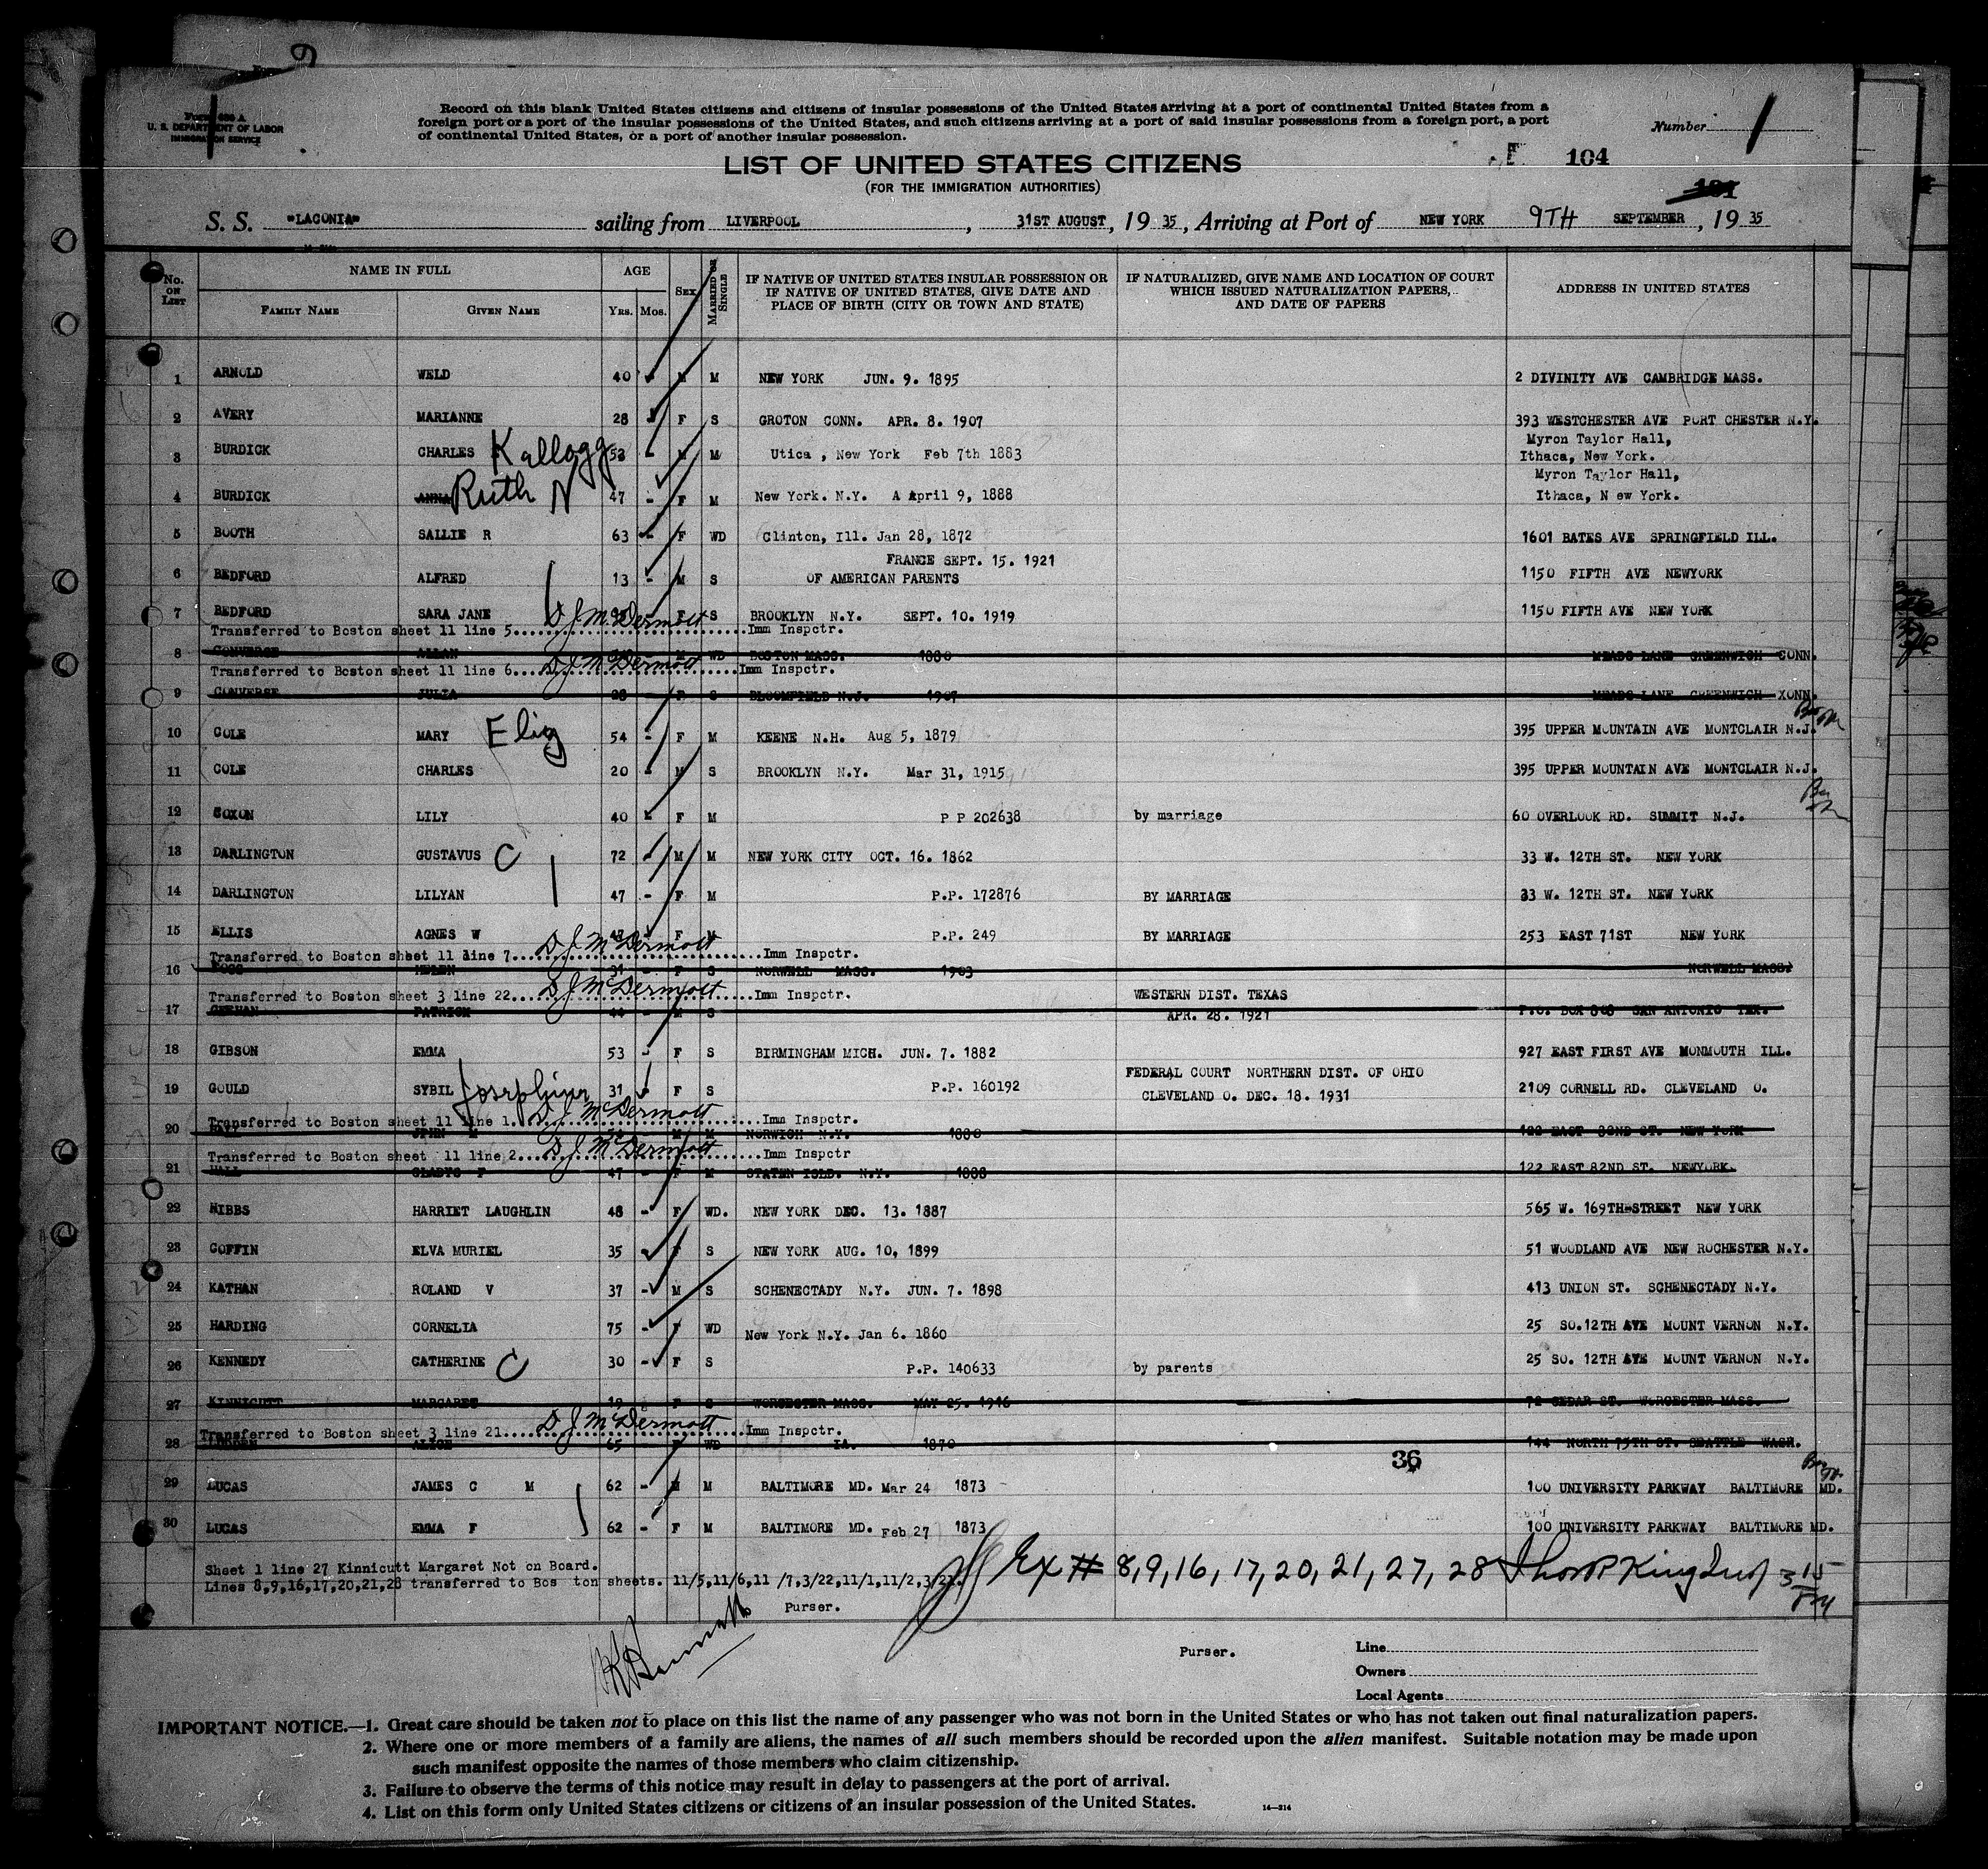 Form 630 A
U. S. DEPARTMENT OF LABOR
IMMIGRATION SERVICE
Record on this blank United States citizens and citizens of insular possessions of the United States arriving at a port of continental United States from a
foreign port or a port of the insular possessions of the United States, and such citizens arriving at a port of said insular possessions from a foreign port, a port
of continental United States, or a port of another insular possession.
Number 1
LIST OF UNITED STATES CITIZENS
104
(FOR THE IMMIGRATION AUTHORITIES)
S. S. "LACONIA" sailing from LIVERPOOL, 31ST AUGUST, 19 35, Arriving at Port of NEW YORK 9TH SEPTEMBER, 19 35
No. ON LIST NAME IN FULL AGE SEX MARRIED OR SINGLE IF NATIVE OF UNITED STATES INSULAR POSSESSION OR IF NATIVE OF UNITED STATES, GIVE DATE AND PLACE OF BIRTH (CITY OR TOWN AND STATE) IF NATURALIZED, GIVE NAME AND LOCATION OF COURT WHICH ISSUED NATURALIZATION PAPERS, AND DATE OF PAPERS ADDRESS IN UNITED STATES
FAMILY NAME GIVEN NAME YRS. MOS.
1 ARNOLD WELD 40 M NEW YORK JUN. 9. 1895 2 DIVINITY AVE CAMBRIDGE MASS.
2 AVERY MARIANNE 28 F S GROTON CONN. APR. 8. 1907 393 WESTCHESTER AVE PORT CHESTER N.Y.
Myron Taylor Hall,
3 BURDICK CHARLES Kallogg 52 M M Utica , New York Feb 7th 1883 Ithaca, New York.
Myron Taylor Hall,
4 BURDICK ANNA Ruth N 47 - F M New York. N.Y. A April 9, 1888 Ithaca, N ew York.
5 BOOTH SALLIE R 63 - F WD Clinton, Ill. Jan 28, 1872 1601 BATES AVE SPRINGFIELD ILL.
FRANCE SEPT. 15. 1921
6 BEDFORD ALFRED 13 - M S OF AMERICAN PARENTS 1150 FIFTH AVE NEWYORK
7 BEDFORD SARA JANE F S BROOKLYN N.Y. SEPT. 10. 1919 1150 FIFTH AVE NEW YORK
Transferred to Boston sheet 11 line 5 D J McDermott Imm Inspctr.
8 CONVERSE ALLAN M WD BOSTON MASS. 1880 MEADS LANE GREENWICH CONN.
Transferred to Boston sheet 11 line 6 D J McDermott Imm Inspctr.
9 CONVERSE JULIA 28 - F S BLOOMFIELD N.J. 1907 MEADS LANE GREENWICH XONN.
10 COLE MARY Eliz 54 - F M KEENE N.H. Aug 5, 1879 395 UPPER MOUNTAIN AVE MONTCLAIR N.J.
11 COLE CHARLES 20 - M S BROOKLYN N.Y. Mar 31, 1915 395 UPPER MOUNTAIN AVE MONTCLAIR N.J.
12 COXON LILY 40 - F M P P 202638 by marriage 60 OVERLOOK RD. SUMMIT N.J.
13 DARLINGTON GUSTAVUS C 72 - M M NEW YORK CITY OCT. 16. 1862 33 W. 12TH ST. NEW YORK
14 DARLINGTON LILYAN 47 - F M P.P. 172876 BY MARRIAGE 33 W. 12TH ST. NEW YORK
15 ELLIS AGNES W F M P.P. 249 BY MARRIAGE 253 EAST 71ST NEW YORK
Transferred to Boston sheet 11 line 7 D J McDermott Imm Inspctr.
16 HELEN 31 - F S NORWELL MASS. 1903 NORWELL MASS.
Transferred to Boston sheet 3 line 22 D J McDermott Imm Inspctr. WESTERN DIST. TEXAS
17 PATRICK 44 - M S APR. 28. 1921 P.O. BOX 808 SAN ANTONIO TEX.
18 GIBSON EMMA 53 - F S BIRMINGHAM MICH. JUN. 7. 1882 927 EAST FIRST AVE MONMOUTH ILL.
FEDERAL COURT NORTHERN DIST. OF OHIO
19 GOULD SYBIL Josephine 31 F S P.P. 160192 CLEVELAND O. DEC. 18. 1931 2109 CORNELL RD. CLEVELAND O.
Transferred to Boston sheet 11 line 1 D J McDermott Imm Inspctr.
20 HALL JOHN M M NORWICH N.Y. 1880 122 EAST 82ND ST. NEW YORK
Transferred to Boston sheet 11 line 2 D J McDermott Imm Inspctr
21 HALL GLADYS F 47 - F M STATEN ISLD. N.Y. 1888 122 EAST 82ND ST. NEWYORK.
22 HIBBS HARRIET LAUGHLIN 48 - F WD. NEW YORK DEC. 13. 1887 565 W. 169TH STREET NEW YORK
23 COFFIN ELVA MURIEL 35 F S NEW YORK AUG. 10, 1899 51 WOODLAND AVE NEW ROCHESTER N.Y.
24 KATHAN ROLAND V 37 - M S SCHENECTADY N.Y. JUN. 7. 1898 413 UNION ST. SCHENECTADY N.Y.
25 HARDING CORNELIA 75 - F WD New York N.Y. Jan 6. 1860 25 SO.12TH AVE MOUNT VERNON N.Y.
26 KENNEDY CATHERINE C 30 - F S P.P. 140633 by parents 25 SO. 12TH AVE MOUNT VERNON N.Y.
27 KINNICUTT MARGARET 19 - F S WORCESTER MASS. MAY 25. 1916 72 CEDAR ST. WORCESTER MASS.
Transferred to Boston sheet 3 line 21 D J McDermott Imm Inspctr.
28 ALICE 65 - F WD IA. 1870 144 NORTH 75TH ST. SEATTLE WASH.
36
29 LUCAS JAMES C M 62 - M M BALTIMORE MD. Mar 24 1873 100 UNIVERSITY PARKWAY BALTIMORE MD.
30 LUCAS EMMA F 62 - F M BALTIMORE MD. Feb 27 1873 100 UNIVERSITY PARKWAY BALTIMORE MD.
Sheet 1 line 27 Kinnicutt Margaret Not on Board.
Lines 8,9,16,17,20,21,28 transferred to Bos ton sheets. 11/5,11/6,11 /7,3/22,11/1,11/2,3/21.
Ex # 8,9,16,17,20,21,27,28
Purser.
Purser.
Line
Owners
Local Agents
IMPORTANT NOTICE.—1. Great care should be taken not to place on this list the name of any passenger who was not born in the United States or who has not taken out final naturalization papers.
2. Where one or more members of a family are aliens, the names of all such members should be recorded upon the alien manifest. Suitable notation may be made upon
such manifest opposite the names of those members who claim citizenship.
3. Failure to observe the terms of this notice may result in delay to passengers at the port of arrival.
4. List on this form only United States citizens or citizens of an insular possession of the United States.
14—214